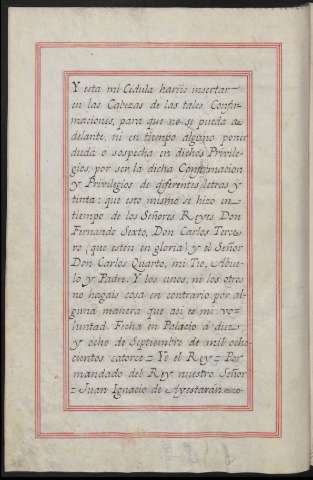 Y esta mi Cedula hariis insertar
en las Cabezas de las tales Confir-
maciones, para que no se pueda a-
delante, ni en tiempo alguno poner
duda o sospecha en dichos Privile-
gios, por ser la dicha Confirmacion
y Privilegios de diferentes letras y
tinta: que esto mismo se hizo en
tiempo de los Señores Reyes Don
Fernando Sexto, Don Carlos Terce-
ro (que estén en gloria) y el Señor
Don Carlos Quarto, mi Tio, Abue-
lo y Padre. Y los unos, ni los otros
no hagais cosa en contrario por al-
guna manera que asi es mi vo-
luntad. Fecha en Palacio á diez
y ocho de Septiembre de mil ocho
cientos catorce = Yo el Rey = Por
mandado del Rey nuestro Señor
= Juan Ignacio de Ayestarán =